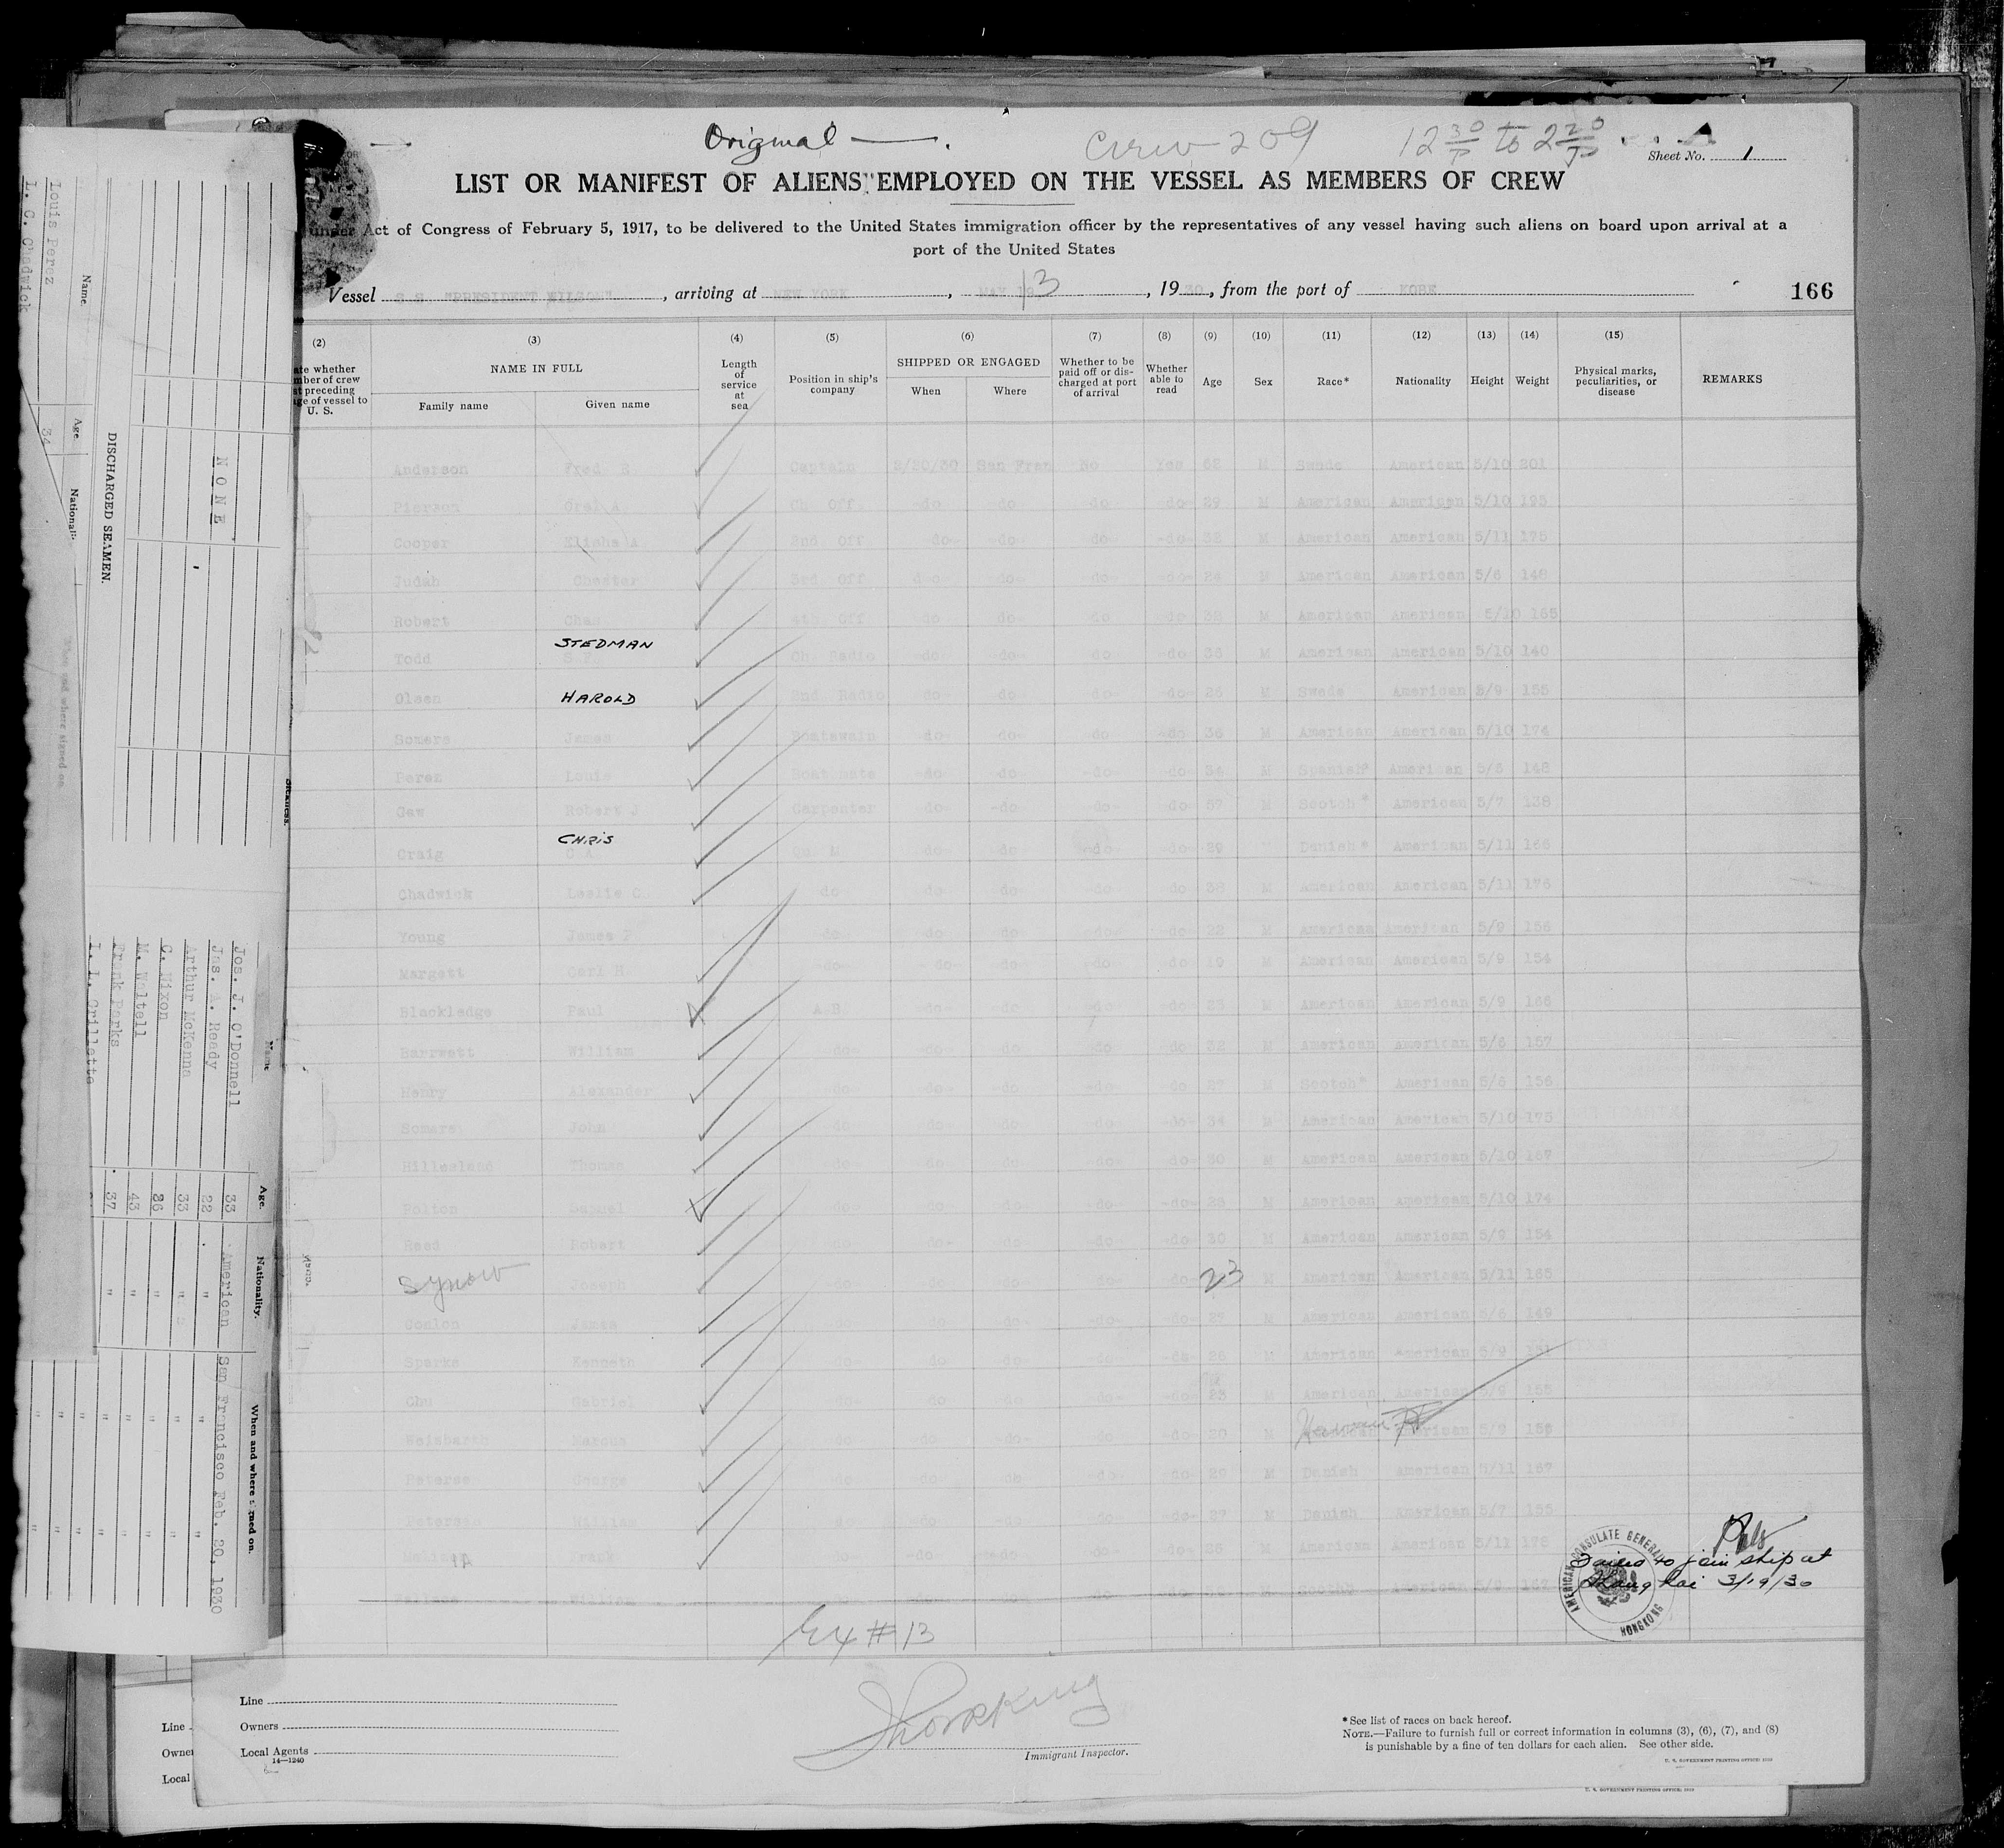 Original —.
Crew 209
12 30/P to 2 20/P
Sheet No. 1
LIST OR MANIFEST OF ALIENS EMPLOYED ON THE VESSEL AS MEMBERS OF CREW
under Act of Congress of February 5, 1917, to be delivered to the United States immigration officer by the representatives of any vessel having such aliens on board upon arrival at a
port of the United States
Vessel S.S. "PRESIDENT WILSON", arriving at NEW YORK, MAY 13, 1930, from the port of KOBE
166
(2) (3) (4) (5) (6) (7) (8) (9) (10) (11) (12) (13) (14) (15)
ate whether
mber of crew
st preceding
ge of vessel to
U. S.
NAME IN FULL
Family name Given name
Length
of
service
at
sea
Position in ship's
company
SHIPPED OR ENGAGED
When Where
Whether to be
paid off or dis-
charged at port
of arrival
Whether
able to
read
Age Sex Race* Nationality Height Weight
Physical marks,
peculiarities, or
disease
REMARKS
Anderson Fred Captain 2/20/30 San Fran No Yes 62 M Swede American 5/10 201
Pierson Oral A. Ch. Off -do- -do- -do- -do- 29 M American American 5/10 195
Cooper Elisha A 2nd. Off -do- -do- -do- -do- 32 M American American 5/11 175
Judah Chester 3rd Off -do- -do- -do- -do- 24 M American American 5/6 148
Robert Chas 4th. Off -do- -do- -do- -do 38 M American American 5/10 165
STEDMAN
Todd Ch. Radio -do- -do- -do- -do 36 M American American 5/10 140
Olsen HAROLD 2nd. Radio -do- do -do- -do- 26 M Swede American 5/9 155
Somers James Boatswain -do -do- do -do 36 M American American 5/10 174
Perez Louis Boat mate -do -do- -do- -do 34 M Spanish* American 5/6 148
Gaw Robert J Carpenter -do- -do- -do- -do 57 M Scotch* American 5/7 138
CHRIS
Craig Qu. M -do -do- -do -do- 29 Danish* American 5/11 166
Chadwick Leslie C. do -do do -do- do 38 M American American 5/11 176
Young James -do- do do -do- -do 22 M American American 5/9 156
Margett Carl H. do- do- do- do do 19 M American American 5/9 154
Blackledge Paul A B -do- do- -do -do- 23 M American American 5/9 166
Barrwett William do do do do do 32 M American American 5/6 157
Henry Alexander -do- -do- -do- -do- -do 27 M Scotch* American 5/8 156
Somers John do -do do do -do- 34 M American American 5/10 175
Hillesland Thomas -do- -do- do -do- -do- 30 M American American 5/10 167
Bolton Samuel do do do do -do- 25 M American American 5/10 174
Reed Robert do do- do -do -do 30 M American American 5/9 154
Synow Joseph do do do do 23 M American American 5/11 165
Conlon James -do- -do -do- -do- -do- 25 M American American 5/6 149
Sparks Kenneth -do- -do -do- do -do- 26 M American American 5/9
Chu Gabriel -do- do -do -do- -do- 23 M American American 5/9 165
Weisbarth Marcus do -do- -do- -do -do 20 M Hawaiian American 5/9 156
Peterse George do -do do -do- -do- 29 M Danish American 5/11 167
Peterson William do do do do -do- 27 M Danish American 5/7 155
Frank do- -do -do -do- -do- 26 M American American 5/11 178
Failed to join ship at
Shanghai 3/19/30
AMERICAN CONSULATE GENERAL
HONGKONG
Ex # 13
Line
Owners
Local Agents
14—1240
Immigrant Inspector.
* See list of races on back hereof.
NOTE.—Failure to furnish full or correct information in columns (3), (6), (7), and (8)
is punishable by a fine of ten dollars for each alien. See other side.
U. S. GOVERNMENT PRINTING OFFICE
Line
Owner
Local
U. S. GOVERNMENT PRINTING OFFICE
DISCHARGED SEAMEN.
NONE
Name. Age. Nationali
Louis Perez 34
L. C. Chadwick
When and where signed on
Sickness.
Name Age. Nationality. When and where signed on.
Jos. J. O'Donnell 33 American San Francisco Feb. 20, 1930
Jas. A. Ready 22 " " "
Arthur McKenna 33 " " "
C. Nixon 36 " " "
M. Waltell 43 " " "
Frank Parks 37 " " "
L. L. Grillette